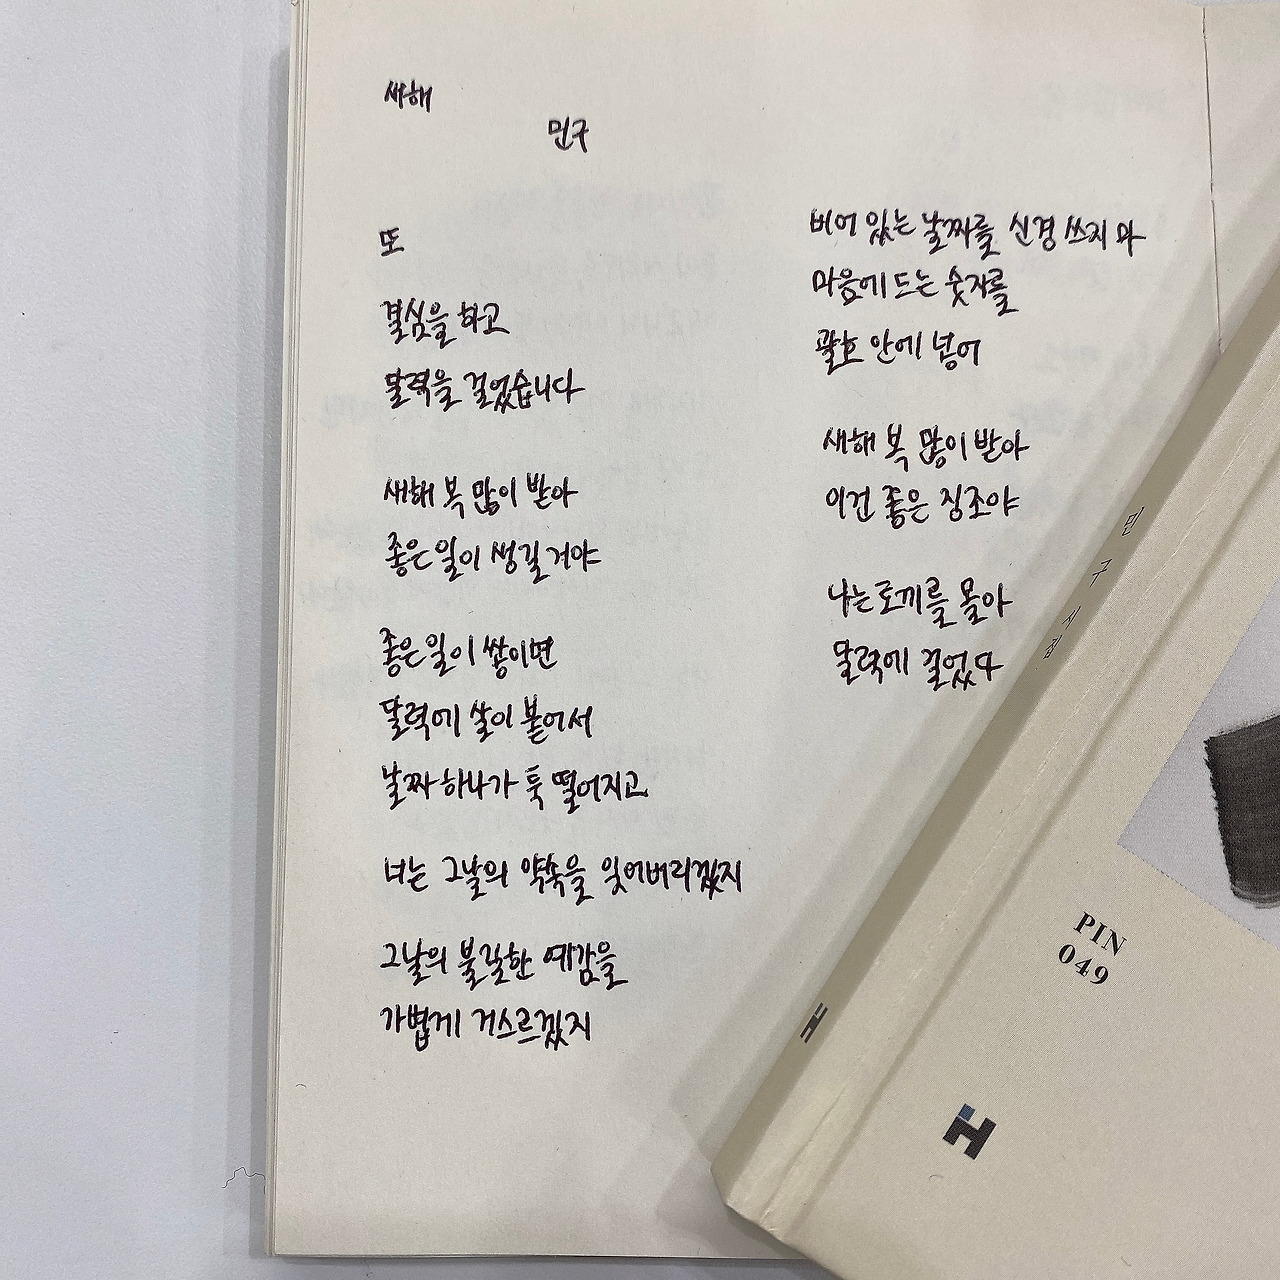 새해
민구
또
결심을 하고
달력을 걸었습니다
새해 복 많이 받아
좋은 일이 생길 거야
좋은 일이 쌓이면
달력에 살이 붙어서
날짜 하나가 툭 떨어지고
너는 그날의 약속을 잊어버리겠지
그날의 불길한 예감을
가볍게 거스르겠지
비어 있는 날짜를 신경 쓰지 마
마음에 드는 숫자를
괄호 안에 넣어
새해 복 많이 받아
이건 좋은 징조야
나는 토끼를 몰아
달력에 걸었다
민구 시집
PIN
049